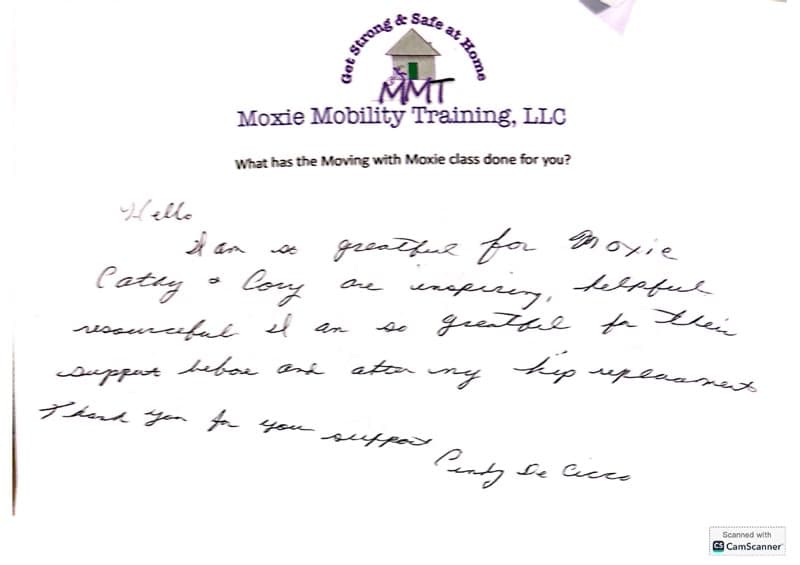 Get Strong & Safe at Home
MMT
Moxie Mobility Training, LLC
What has the Moving with Moxie class done for you?
Hello
I am so greatful for Moxie
Cathy & Cory are inspiring, helpful
resourceful I am so greatful for their
support before and after my hip replacement
Thank you for you support
Cindy De Cicco
Scanned with
CS CamScanner